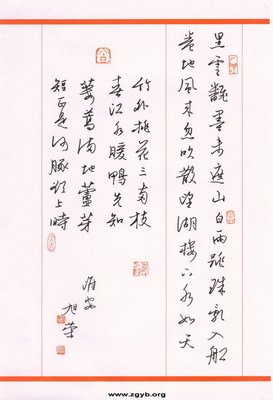 黑雲翻墨未遮山白雨跳珠亂入船
卷地風来忽吹散望湖樓下水如天
竹外桃花三兩枝
春江水暖鴨先知
蔞蒿满地蘆芽
短正是河豚欲上時
淮安
旭榮
www.zgyb.org